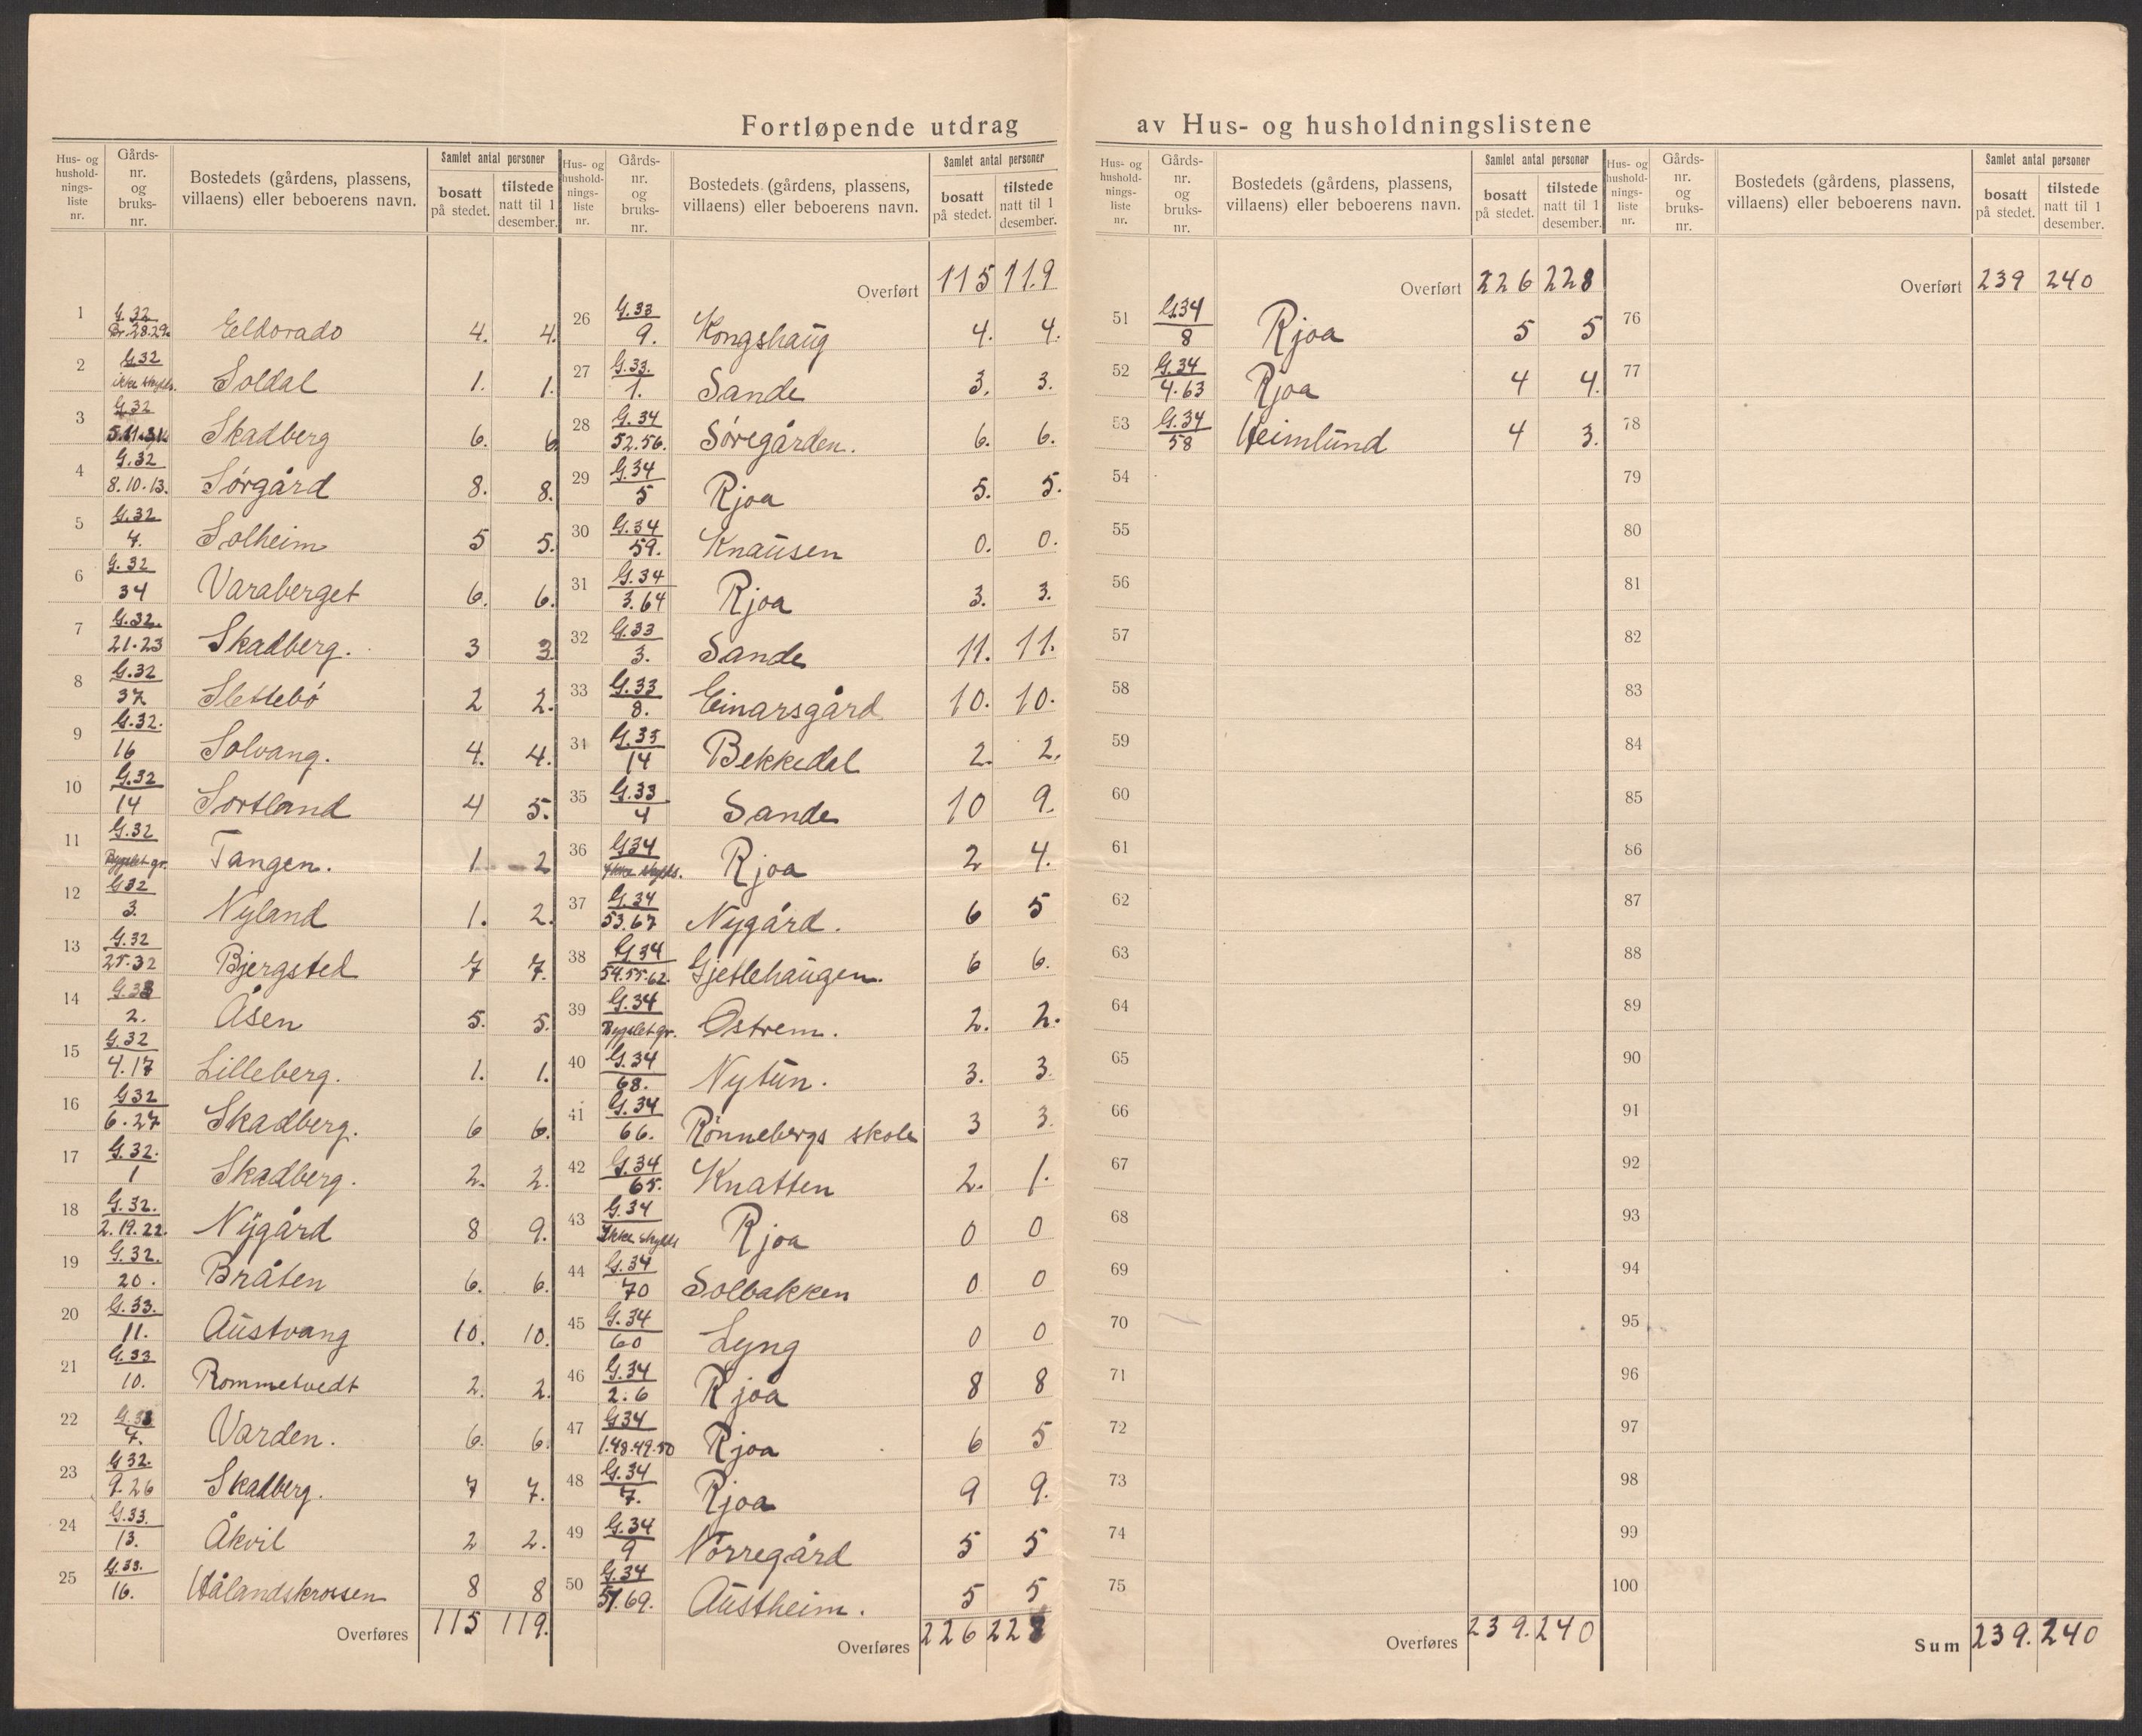 Fortløpende utdrag av Hus- og husholdningslistene
Hus- og hushold-nings-liste nr. | Gårds-nr. og bruks-nr. | Bostedets (gårdens, plassens, villaens) eller beboerens navn. | Samlet antal personer | bosatt på stedet. | tilstede natt til 1 desember.
1 G.32 Br. 28.29. Eldorado 4. 4.
2 G.32 ikke skylds. Soldal 1. 1.
3 G.32 Skadberg 6. 6
4 G.32 8.10.13. Sørgård 8. 8.
5 G.32 4. Solheim 5 5.
6 G.32 34 Varaberget 6. 6.
7 G.32. 21.23 Skadberg. 3 3.
8 G.32 37 Slettebø 2 2.
9 G.32. 16 Solvang. 4. 4.
10 G.32 14 Sortland 4 5.
11 G.32 Bygslet gr. Tangen. 1. 2
12 G32 3. Nyland 1. 2.
13 G.32 25.32 Bjergsted 7 7.
14 G.33 2. Åsen 5. 5.
15 G.32 4.17 Lilleberg. 1. 1.
16 G32 6.27 Skadberg. 6 6.
17 G.32. 1 Skadberg. 2. 2.
18 G.32. 2.19.22. Nygård 8 9.
19 G.32. 20. Bråten 6. 6.
20 G.33. 11. Austvang 10. 10.
21 G.33 10. Rommetvedt 2. 2.
22 G.33 7. Varden. 6. 6.
23 G32. 9.26 Skadberg. 7 7.
24 G.33. 13. Åkvil 2 2.
25 G.33. 16. Hålandskrossen 8 8
Overføres 115 119.
Hus- og hushold-nings-liste nr. | Gårds-nr. og bruks-nr. | Bostedets (gårdens, plassens, villaens) eller beboerens navn. | Samlet antal personer | bosatt på stedet. | tilstede natt til 1 desember.
Overført 115 119
26 G.33 9. Kongshaug 4. 4.
27 G.33. 1. Sande 3. 3.
28 G.34 52.56. Søregården. 6. 6.
29 G.34 5 Rjoa 5. 5.
30 G.34 59. Knausen 0. 0.
31 G.34 3.64 Rjoa 3. 3.
32 G.33 3. Sande 11. 11.
33 G.33 8. Einarsgård 10. 10.
34 G.33 14 Bekkedal 2. 2.
35 G.33 4 Sande 10 9.
36 G34 Ikke skylds. Rjoa 2 4.
37 G.34 53.67 Nygård. 6 5
38 G.34 54.55.62. Gjetlehaugen. 6 6.
39 G.34 Bygslet gr. Østrem. 2. 2.
40 G.34 68. Nytun. 3. 3
41 G.34 66. Rønnebergs skole 3 3.
42 G.34 65. Knatten 2. 1.
43 G.34 Ikke skylds Rjoa 0 0
44 G.34 70 Solbakken 0 0
45 G.34 60 Lyng 0 0
46 G.34 2.6 Rjoa 8 8
47 G34 1.48.49.50 Rjoa 6 5
48 G.34 7. Rjoa 9 9.
49 G.34 9 Nørregård 5 5
50 G.34 51.69. Austheim. 5 5
Overføres 226 228
Hus- og hushold-nings-liste nr. | Gårds-nr. og bruks-nr. | Bostedets (gårdens, plassens, villaens) eller beboerens navn. | Samlet antal personer | bosatt på stedet. | tilstede natt til 1 desember.
Overført 226 228
51 G34 8 Rjoa 5 5
52 G.34 4.63 Rjoa 4 4.
53 G.34 58 Heimlund 4 3.
54
55
56
57
58
59
60
61
62
63
64
65
66
67
68
69
70
71
72
73
74
75
Overføres 239. 240
Hus- og hushold-nings-liste nr. | Gårds-nr. og bruks-nr. | Bostedets (gårdens, plassens, villaens) eller beboerens navn. | Samlet antal personer | bosatt på stedet. | tilstede natt til 1 desember.
Overført 239 240
76
77
78
79
80
81
82
83
84
85
86
87
88
89
90
91
92
93
94
95
96
97
98
99
100
Sum 239. 240